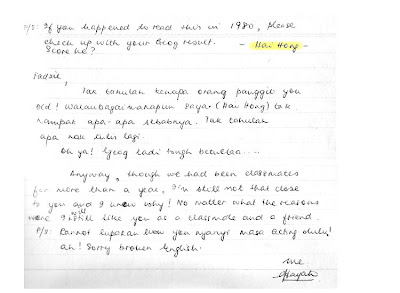 P/S: If you happened to read this in 1980, please
check up with your Geog result.
Score ke? - Hai Hong -
Fadzil,
Tak tahulah kenapa orang panggil you
Old! Walaubagaimanapun saya (Hai Hong) tak
nampak apa-apa sebabnya. Tak tahulah
apa nak tulis lagi.
Oh ya! Geog tadi tough
Anyway, though we had been classmates
for more than a year, I'm still not that close
to you and I know why! No matter what the reasons
were I will still like you as a classmate and a friend.
P/S: Cannot lupakan how you nyanyi masa acting dulu!
ah! Sorry broken English.
Hayati